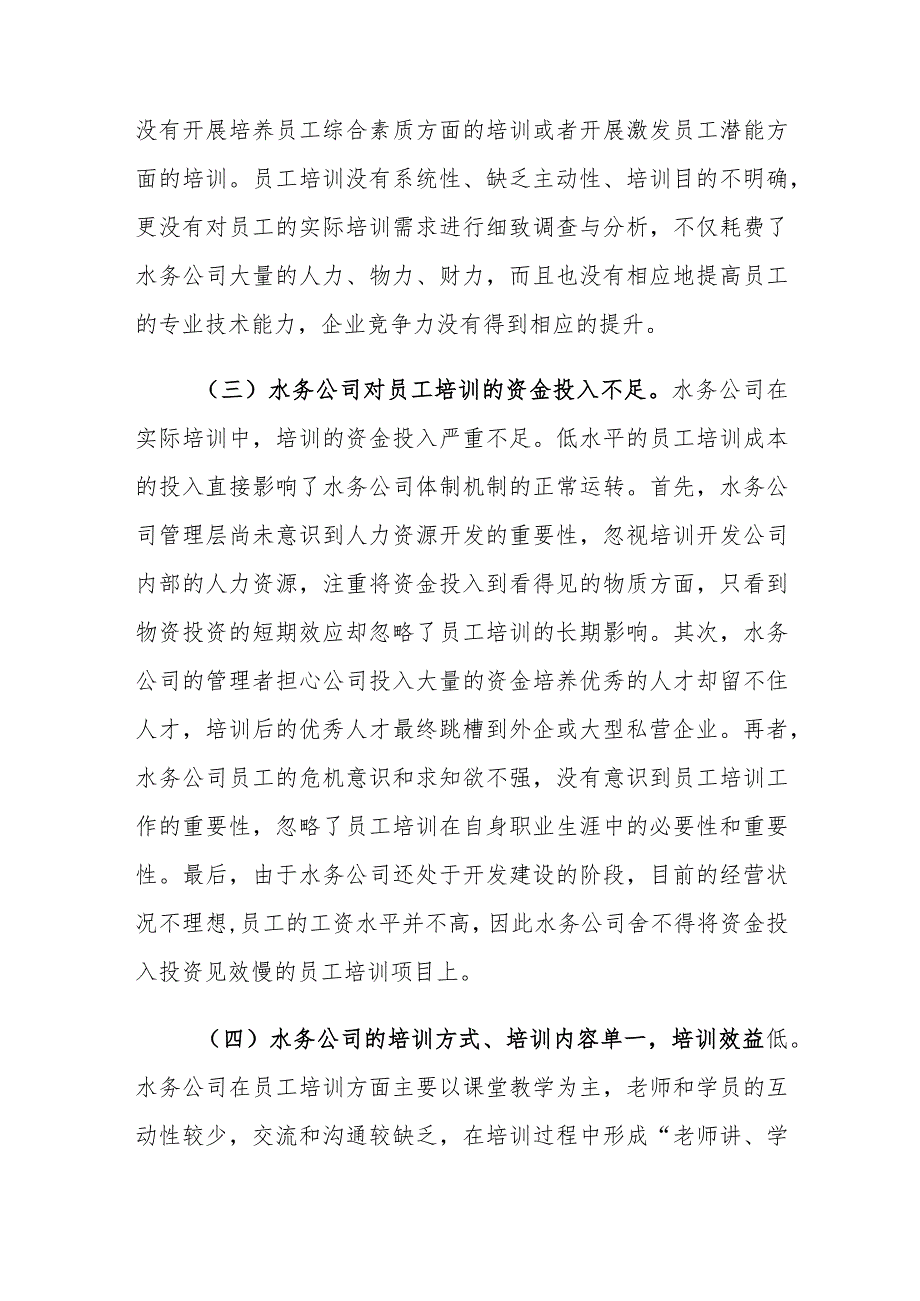 没有开展培养员工综合素质方面的培训或者开展激发员工潜能方
面的培训。员工培训没有系统性、缺乏主动性、培训目的不明确，
更没有对员工的实际培训需求进行细致调查与分析，不仅耗费了
水务公司大量的人力、物力、财力，而且也没有相应地提高员工
的专业技术能力，企业竞争力没有得到相应的提升。
（三）水务公司对员工培训的资金投入不足。水务公司在
实际培训中，培训的资金投入严重不足。低水平的员工培训成本
的投入直接影响了水务公司体制机制的正常运转。首先，水务公
司管理层尚未意识到人力资源开发的重要性，忽视培训开发公司
内部的人力资源，注重将资金投入到看得见的物质方面，只看到
物资投资的短期效应却忽略了员工培训的长期影响。其次，水务
公司的管理者担心公司投入大量的资金培养优秀的人才却留不住
人才，培训后的优秀人才最终跳槽到外企或大型私营企业。再者，
水务公司员工的危机意识和求知欲不强，没有意识到员工培训工
作的重要性，忽略了员工培训在自身职业生涯中的必要性和重要
性。最后，由于水务公司还处于开发建设的阶段，目前的经营状
况不理想,员工的工资水平并不高,因此水务公司舍不得将资金投
入投资见效慢的员工培训项目上。
（四）水务公司的培训方式、培训内容单一，培训效益低。
水务公司在员工培训方面主要以课堂教学为主，老师和学员的互
动性较少，交流和沟通较缺乏，在培训过程中形成“老师讲、学